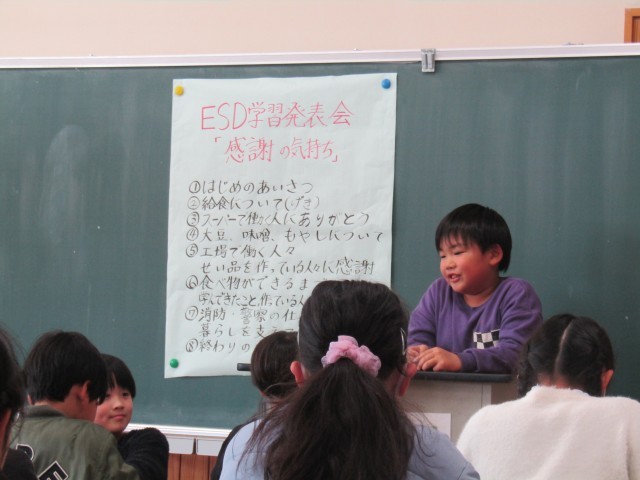 ESD学習発表会
「感謝の気持ち」
①はじめのあいさつ
②給食について(げき)
③スーパーで働く人にありがとう
④大豆、味噌、もやしについて
⑤工場で働く人々
せい品を作っている人々に感謝
⑥食べ物ができるま
学んできたこと,作っている人
⑦消防・警察の仕
暮らしを支
⑧終わりの